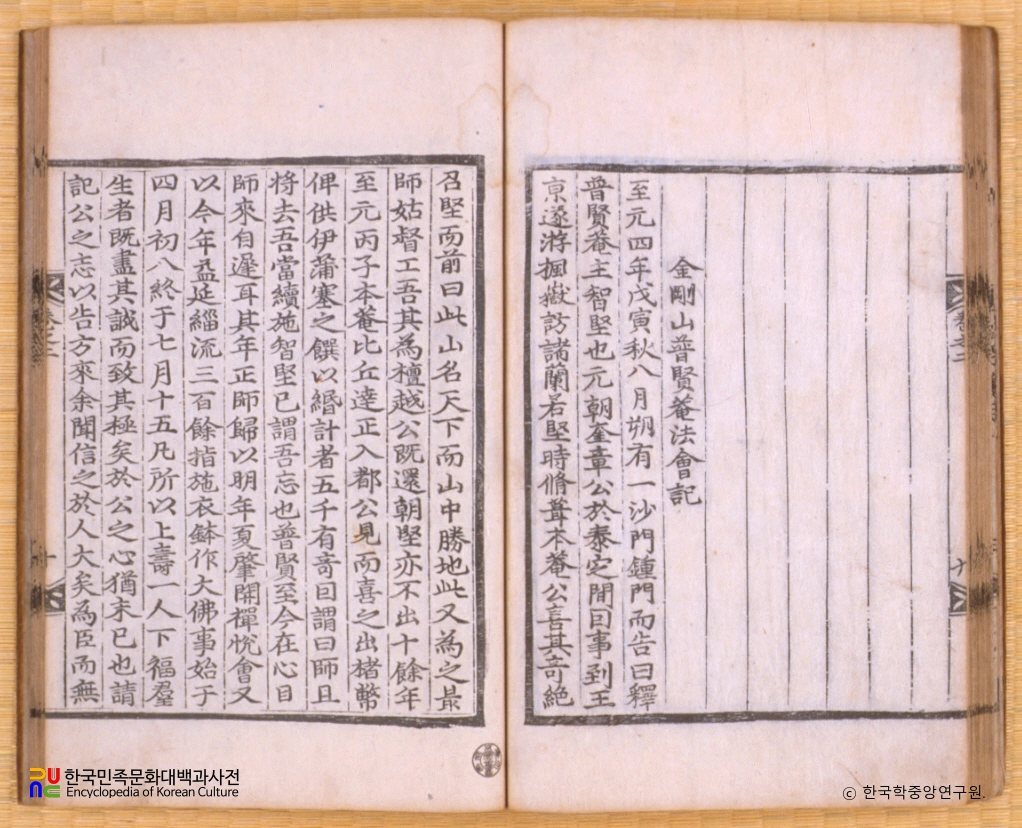 金剛山普賢菴法會記
至元四年戊寅秋八月朔有一沙門鍾門而告曰釋
普賢菴主智堅也元朝奎章公於泰定間因事到王
京遂游楓嶽訪諸蘭若堅時脩葺本菴公喜其奇絶
召堅而前曰此山名天下而山中勝地此又為之最
師姑督工吾其為檀越公既還朝堅亦不出十餘年
至元丙子本菴比丘達正入都公見而喜之出楮幣
俾供伊蒲塞之饌以緡計者五千有奇曰謂曰師且
將去吾當續施智堅已謂吾忘也普賢至今在心目
師來自遲耳其年正師歸以明年夏肇開禪悅會又
以今年益延緇流三百餘指施衣鉢作大佛事始于
四月初八終于七月十五凡所以上壽一人下福羣
生者既盡其誠而致其極矣於公之心猶未已也請
記公之志以告方來余聞信之於人大矣為臣而無
卷之二
한국민족문화대백과사전
Encyclopedia of Korean Culture
ⓒ 한국학중앙연구원.